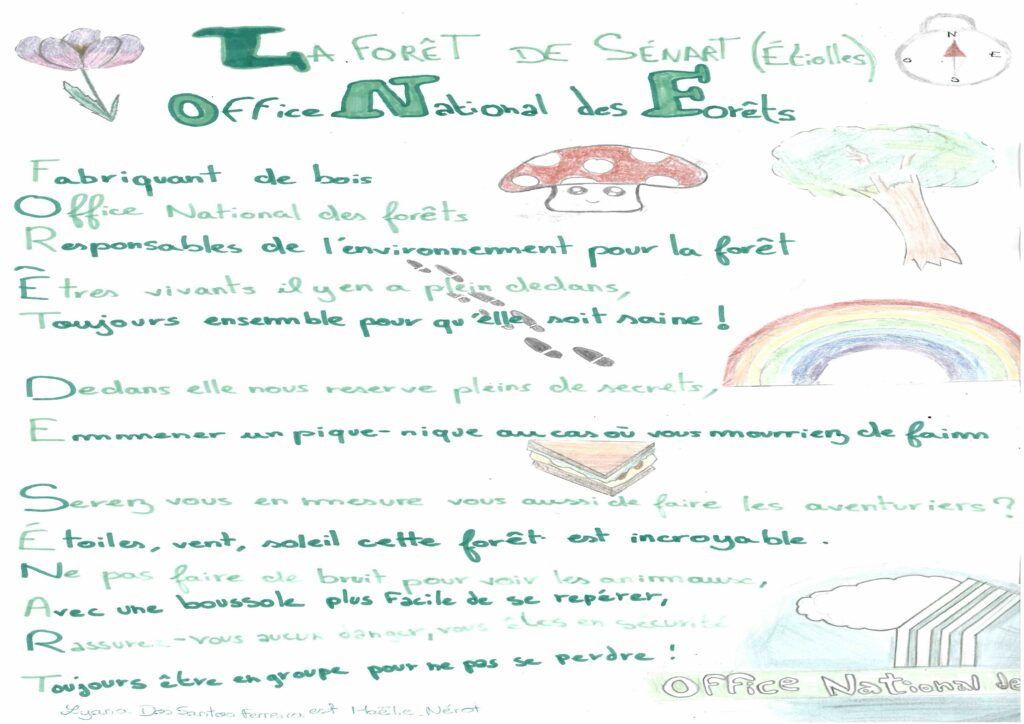 La Forêt de Sénart (Étiolles)
Office National des Forêts
N
O E
S
Fabriquant de bois
Office National des forêts
Responsables de l'environnement pour la forêt
Êtres vivants il y en a plein dedans,
Toujours ensemble pour qu'elle soit saine !
Dedans elle nous reserve pleins de secrets,
Emmener un pique-nique au cas où vous mourriez de faim
Serez vous en mesure vous aussi de faire les aventuriers ?
Étoiles, vent, soleil cette forêt est incroyable.
Ne pas faire de bruit pour voir les animaux,
Avec une boussole plus facile de se repérer,
Rassurez-vous aucun danger, vous êtes en sécurité
Toujours être en groupe pour ne pas se perdre !
Office National de
Lyana Dos Santos Ferreira est Maëlie Nérot